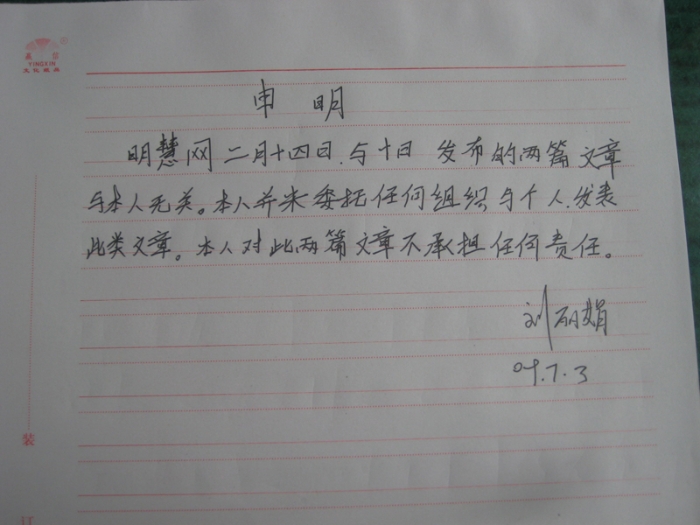 燕京
YINGXIN
文化用品
申明
明慧网二月十四日、与十日 发布的两篇文章
与本人无关。本人并未委托任何组织与个人、发表
此类文章。本人对此两篇文章不承担任何责任。
刘丽娟
09.7.3
装
订